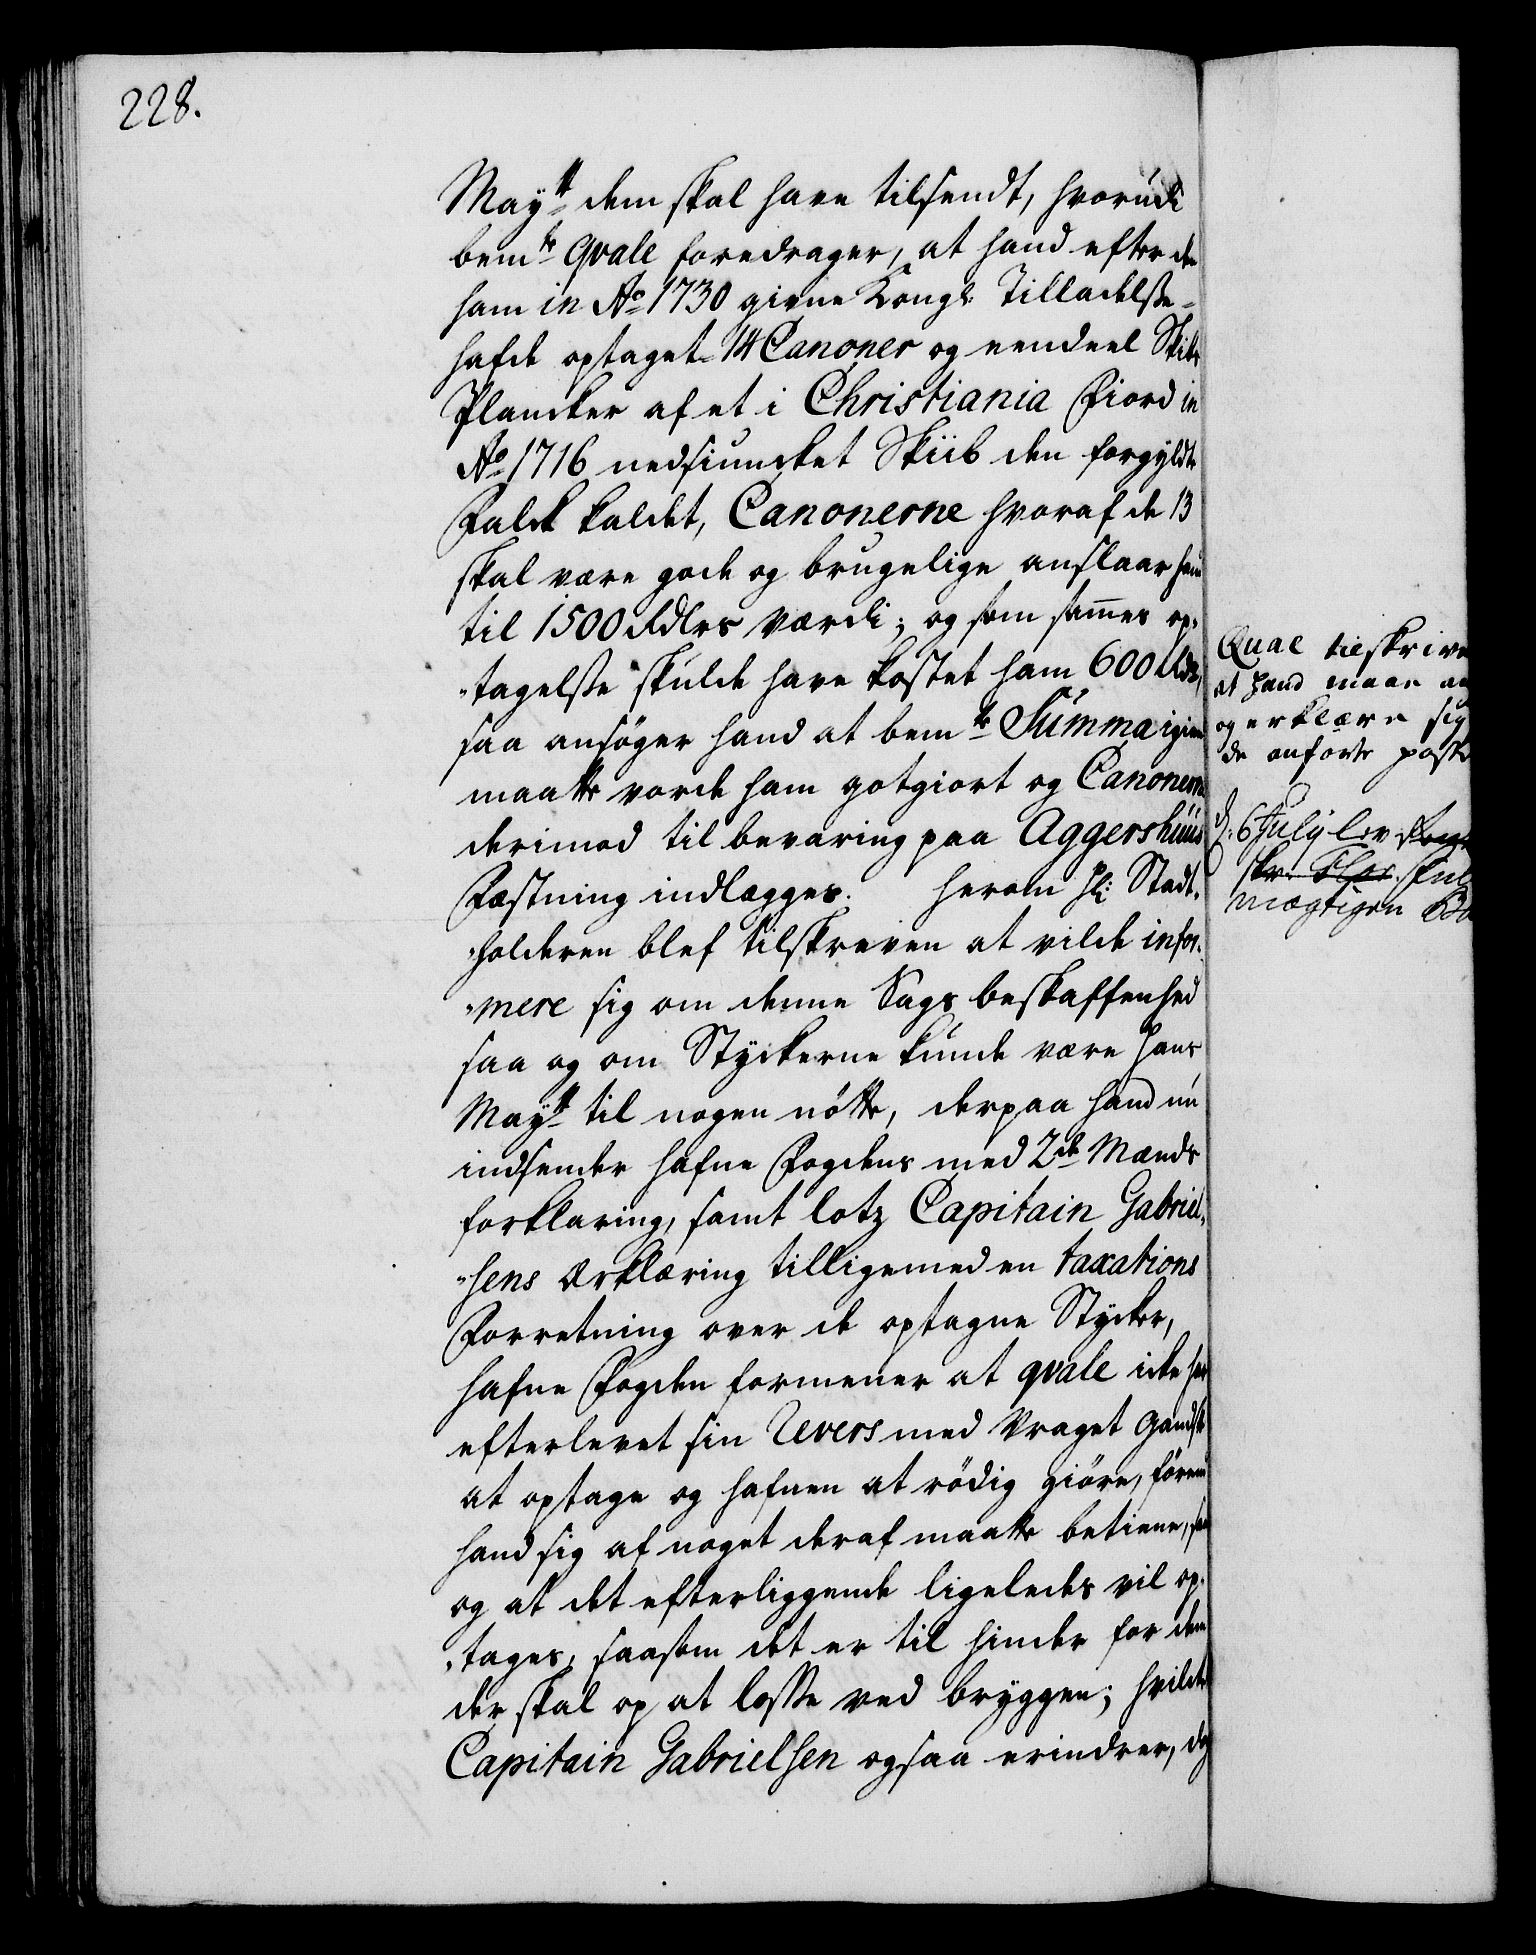 228.
Mayᵗᵗ dem skal have tilsendt, hvorudi
bemᵗᵉ Qvale foredrager, at hand efter den
ham in Aº 1730 givne Kongl: Tilladelße
hafde optaget 14 Canoner og eendeel Skibs
Plancker af et i Christiania Fiord in
Aº 1716 nedsiuncket Skiib den forgyldte
Falck kaldet, Canonerne hvoraf de 13
skal være gode og brugelige anslaar hand
til 1500 Rdlrs værdi; og som sammes op„
„tagelße skulde have kostet ham 600 Rdr,
saa ansøger hand at bemᵗᵉ Summa igien
maatte vorde ham gotgiort og Canonerne
derimod til bevaring paa Aggershuus
Fæstning indlægges. Herom Hr: Stadt„
„holderen blef tilskreven at vilde infor„
„mere sig om denne Sags beskaffenhed
saa og om Styckerne kunde være Hans
Mayᵗᵗ til nogen nötte, derpaa hand nu
indsender Hafne Fogdens med 2ᵈᵉ Mænds
forklaring, samt lotz Capitain Gabriel„
„sens Erklæring tilligemed en taxations
Forretning over de optagne Stycker,
Hafne Fogden formener at qvale icke har
efterlevet sin Revers med Vraget gandske
at optage og hafnen at rödig giöre, förend
hand sig af noget deraf maatte betiene, saa
og at det efterliggende ligeledes vil op„
„tages, saasom det er til hinder for dem
der skal op at losse ved bryggen; hvilcket
Capitain Gabrielsen ogsaa erindrer, dog
Qual tilskrives
at hand maae
og erklære sig
de anførte poster
d: 6 July lev